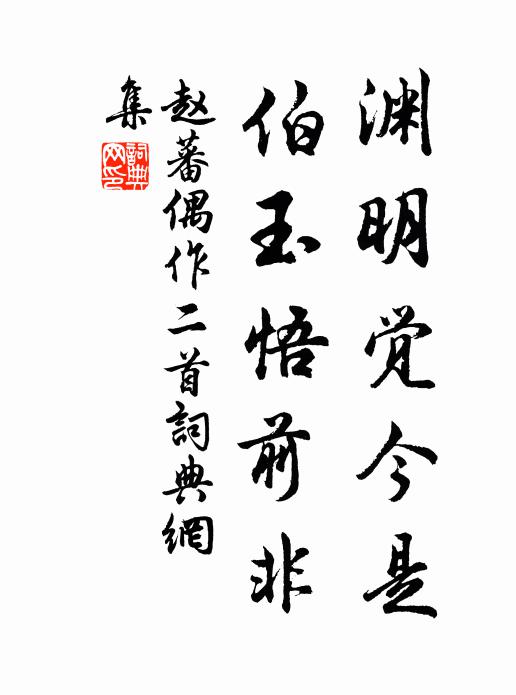 渊明觉今是
伯玉悟前非
赵蕃偶作二首詞典網
集
詞典
网印